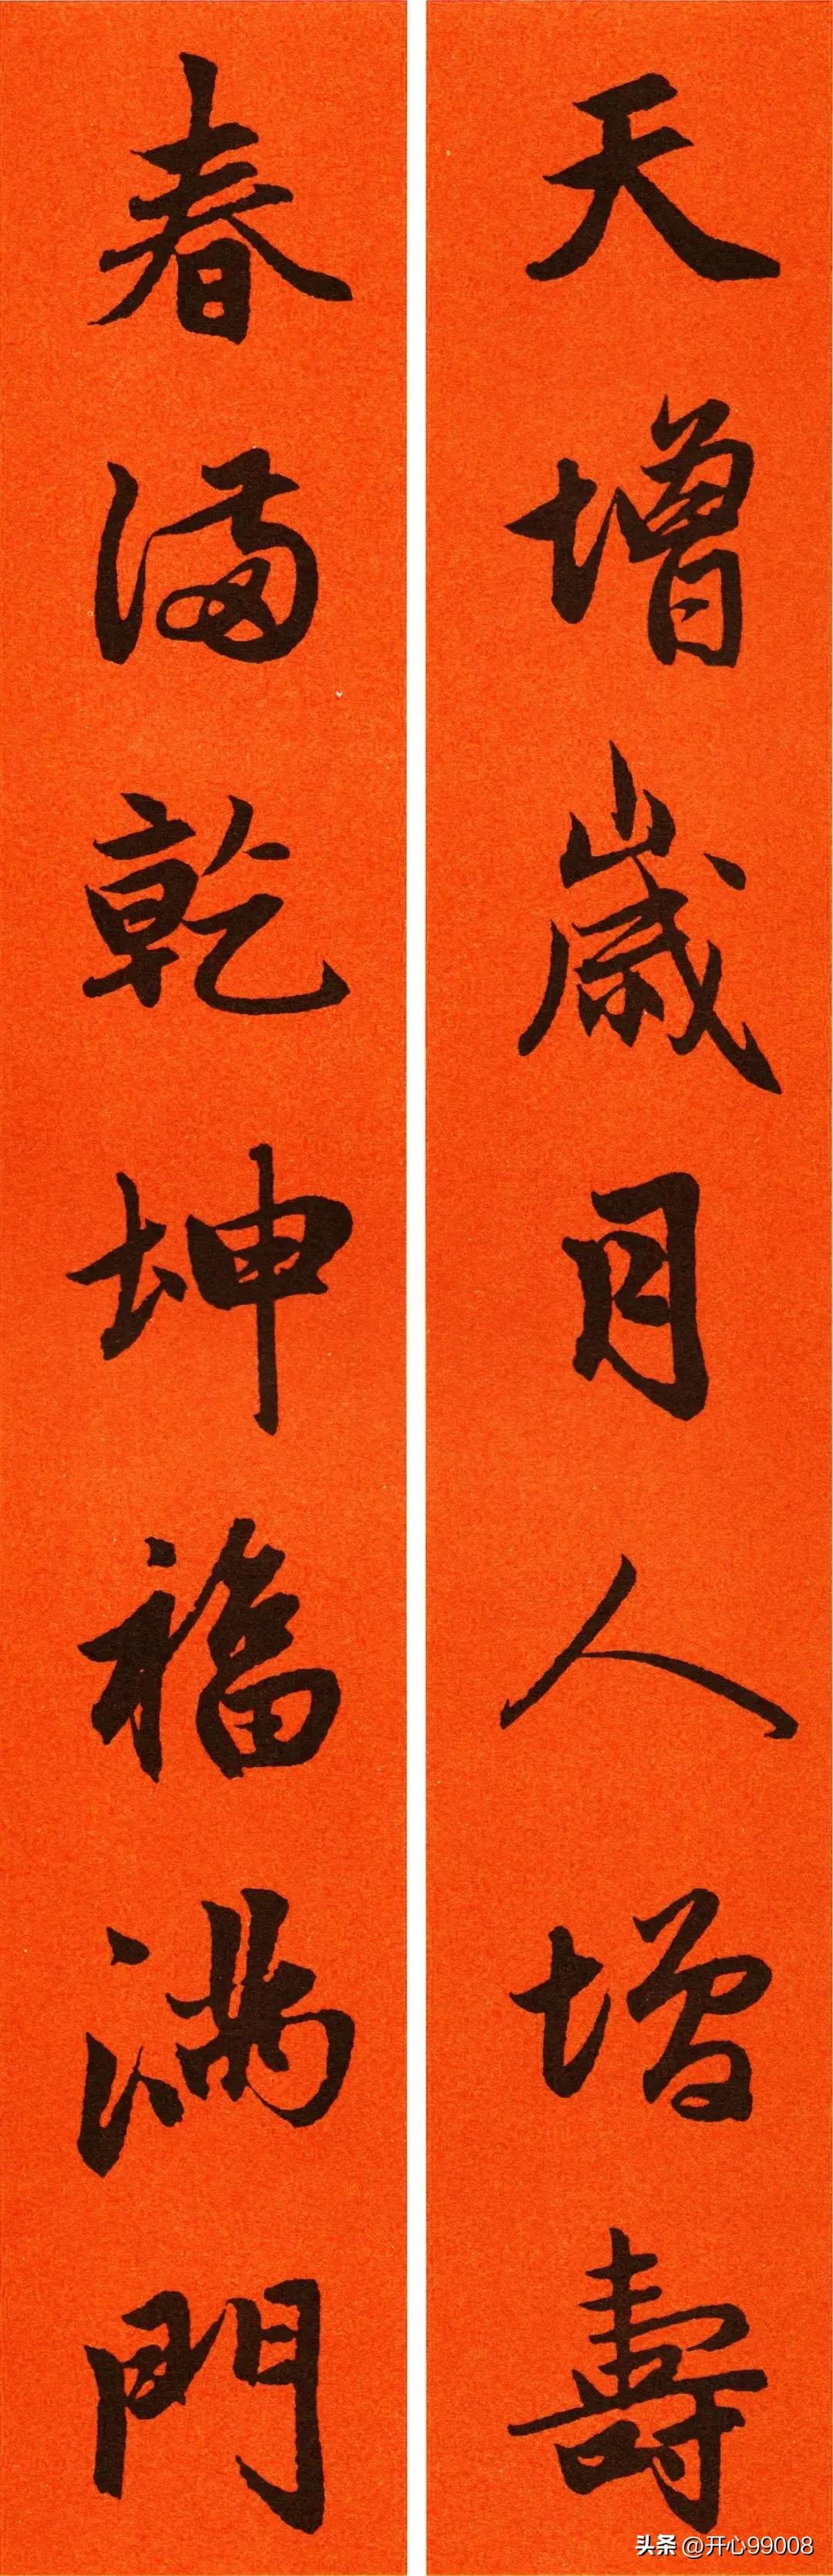 天增歲月人增壽
春滿乾坤福滿門
头条 @开心99008